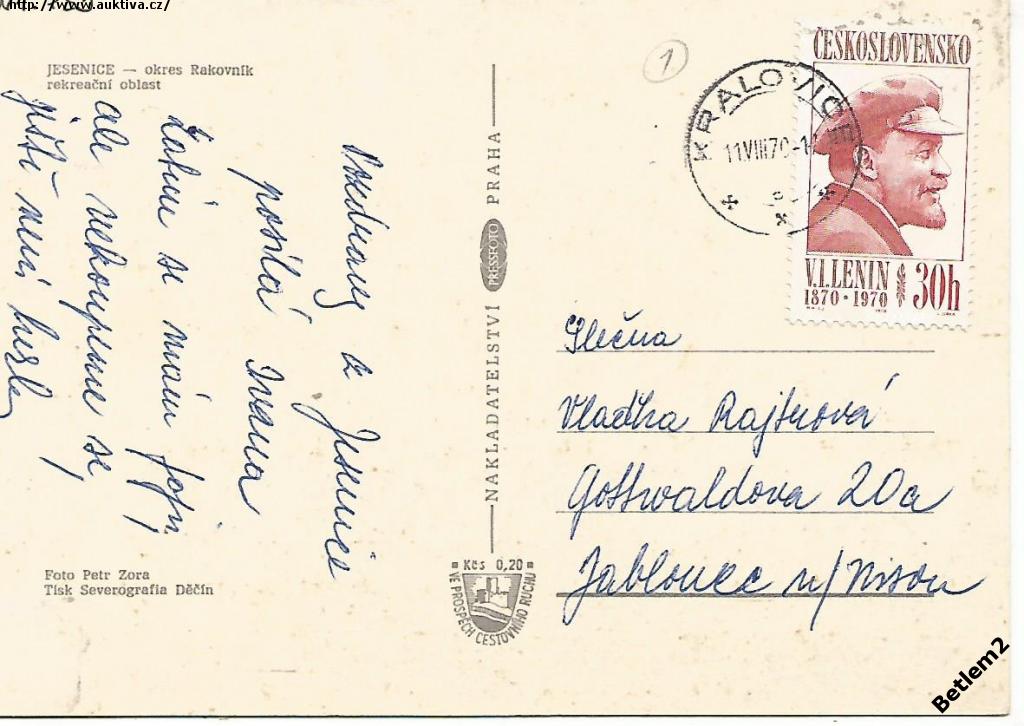 http://www.auktiva.cz/
JESENICE — okres Rakovník
rekreační oblast
Pozdravy z Jesenice
posílá Ivana
Zatím se mám fajn,
ale nekoupeme se,
ještě není hezky
Foto Petr Zora
Tisk Severografia Děčín
NAKLADATELSTVÍ PRESSFOTO PRAHA
Kčs 0,20
VE PROSPĚCH CESTOVNÍHO RUCHU
1
KRALOVICE
11.VIII.70-1
ČESKOSLOVENSKO
V.I.LENIN
1870 · 1970
30h
Slečna
Vlaďka Rajtrová
Gottwaldova 20a
Jablonec n/Nisou
Betlem2